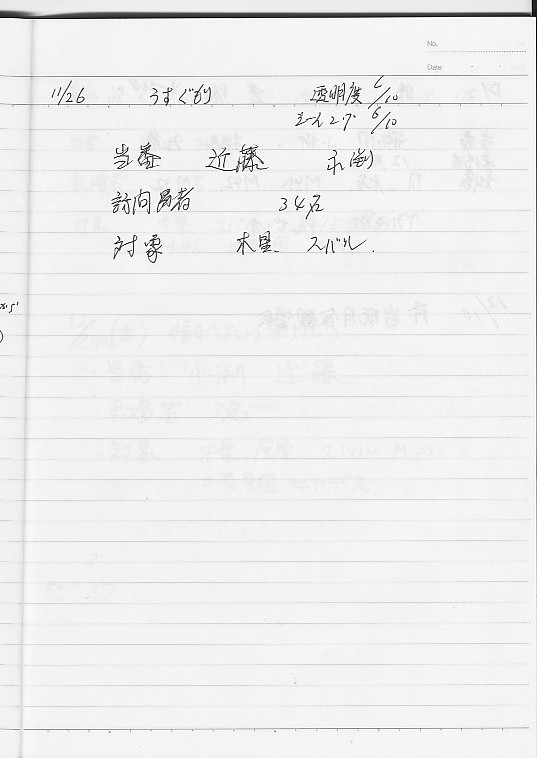 No.
Date
11/26 うすぐもり 透明度 6/10
シーイング 6/10
当番 近藤
訪問者 34名
対象 木星、スバル.